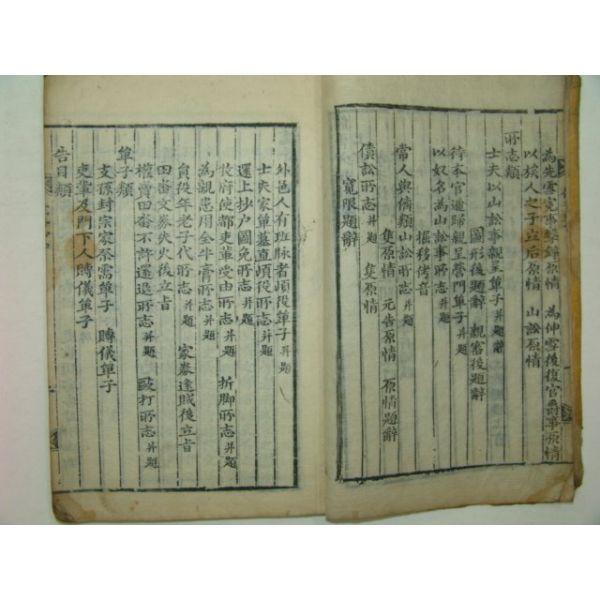 為先雪寃事擊錚原情 為仲雪後復官爵事原情
以族人之子立后原情 山訟原情
所志類
士夫以山訟事親呈單子 幷題
圖形後題辭 親審後題辭
待本官還歸親呈營門單子 幷題
以奴名為山訟事所志 幷題
掘移侤音
常人與儕類山訟所志 幷題
隻原情 元告原情 原情題辭
債訟所志 幷題 隻原情
寬限題辭
外邑人有班脉者頉役單子 幷題
士夫家單墓直頉役所志 幷題
還上抄户圖免所志 幷題
牧府使都吏輩受由所志 幷題 折脚所志 幷題
為親患用全牛膏所志 幷題
負役年老子代所志 幷題 家券逢賊後立旨
田畓文券失火後立旨
權賣田畓不許還退所志 幷題 毆打所志 幷題
單子類
支孫封宗家祭需單子 賻儀單子
吏輩及門下人賻儀單子
告目類